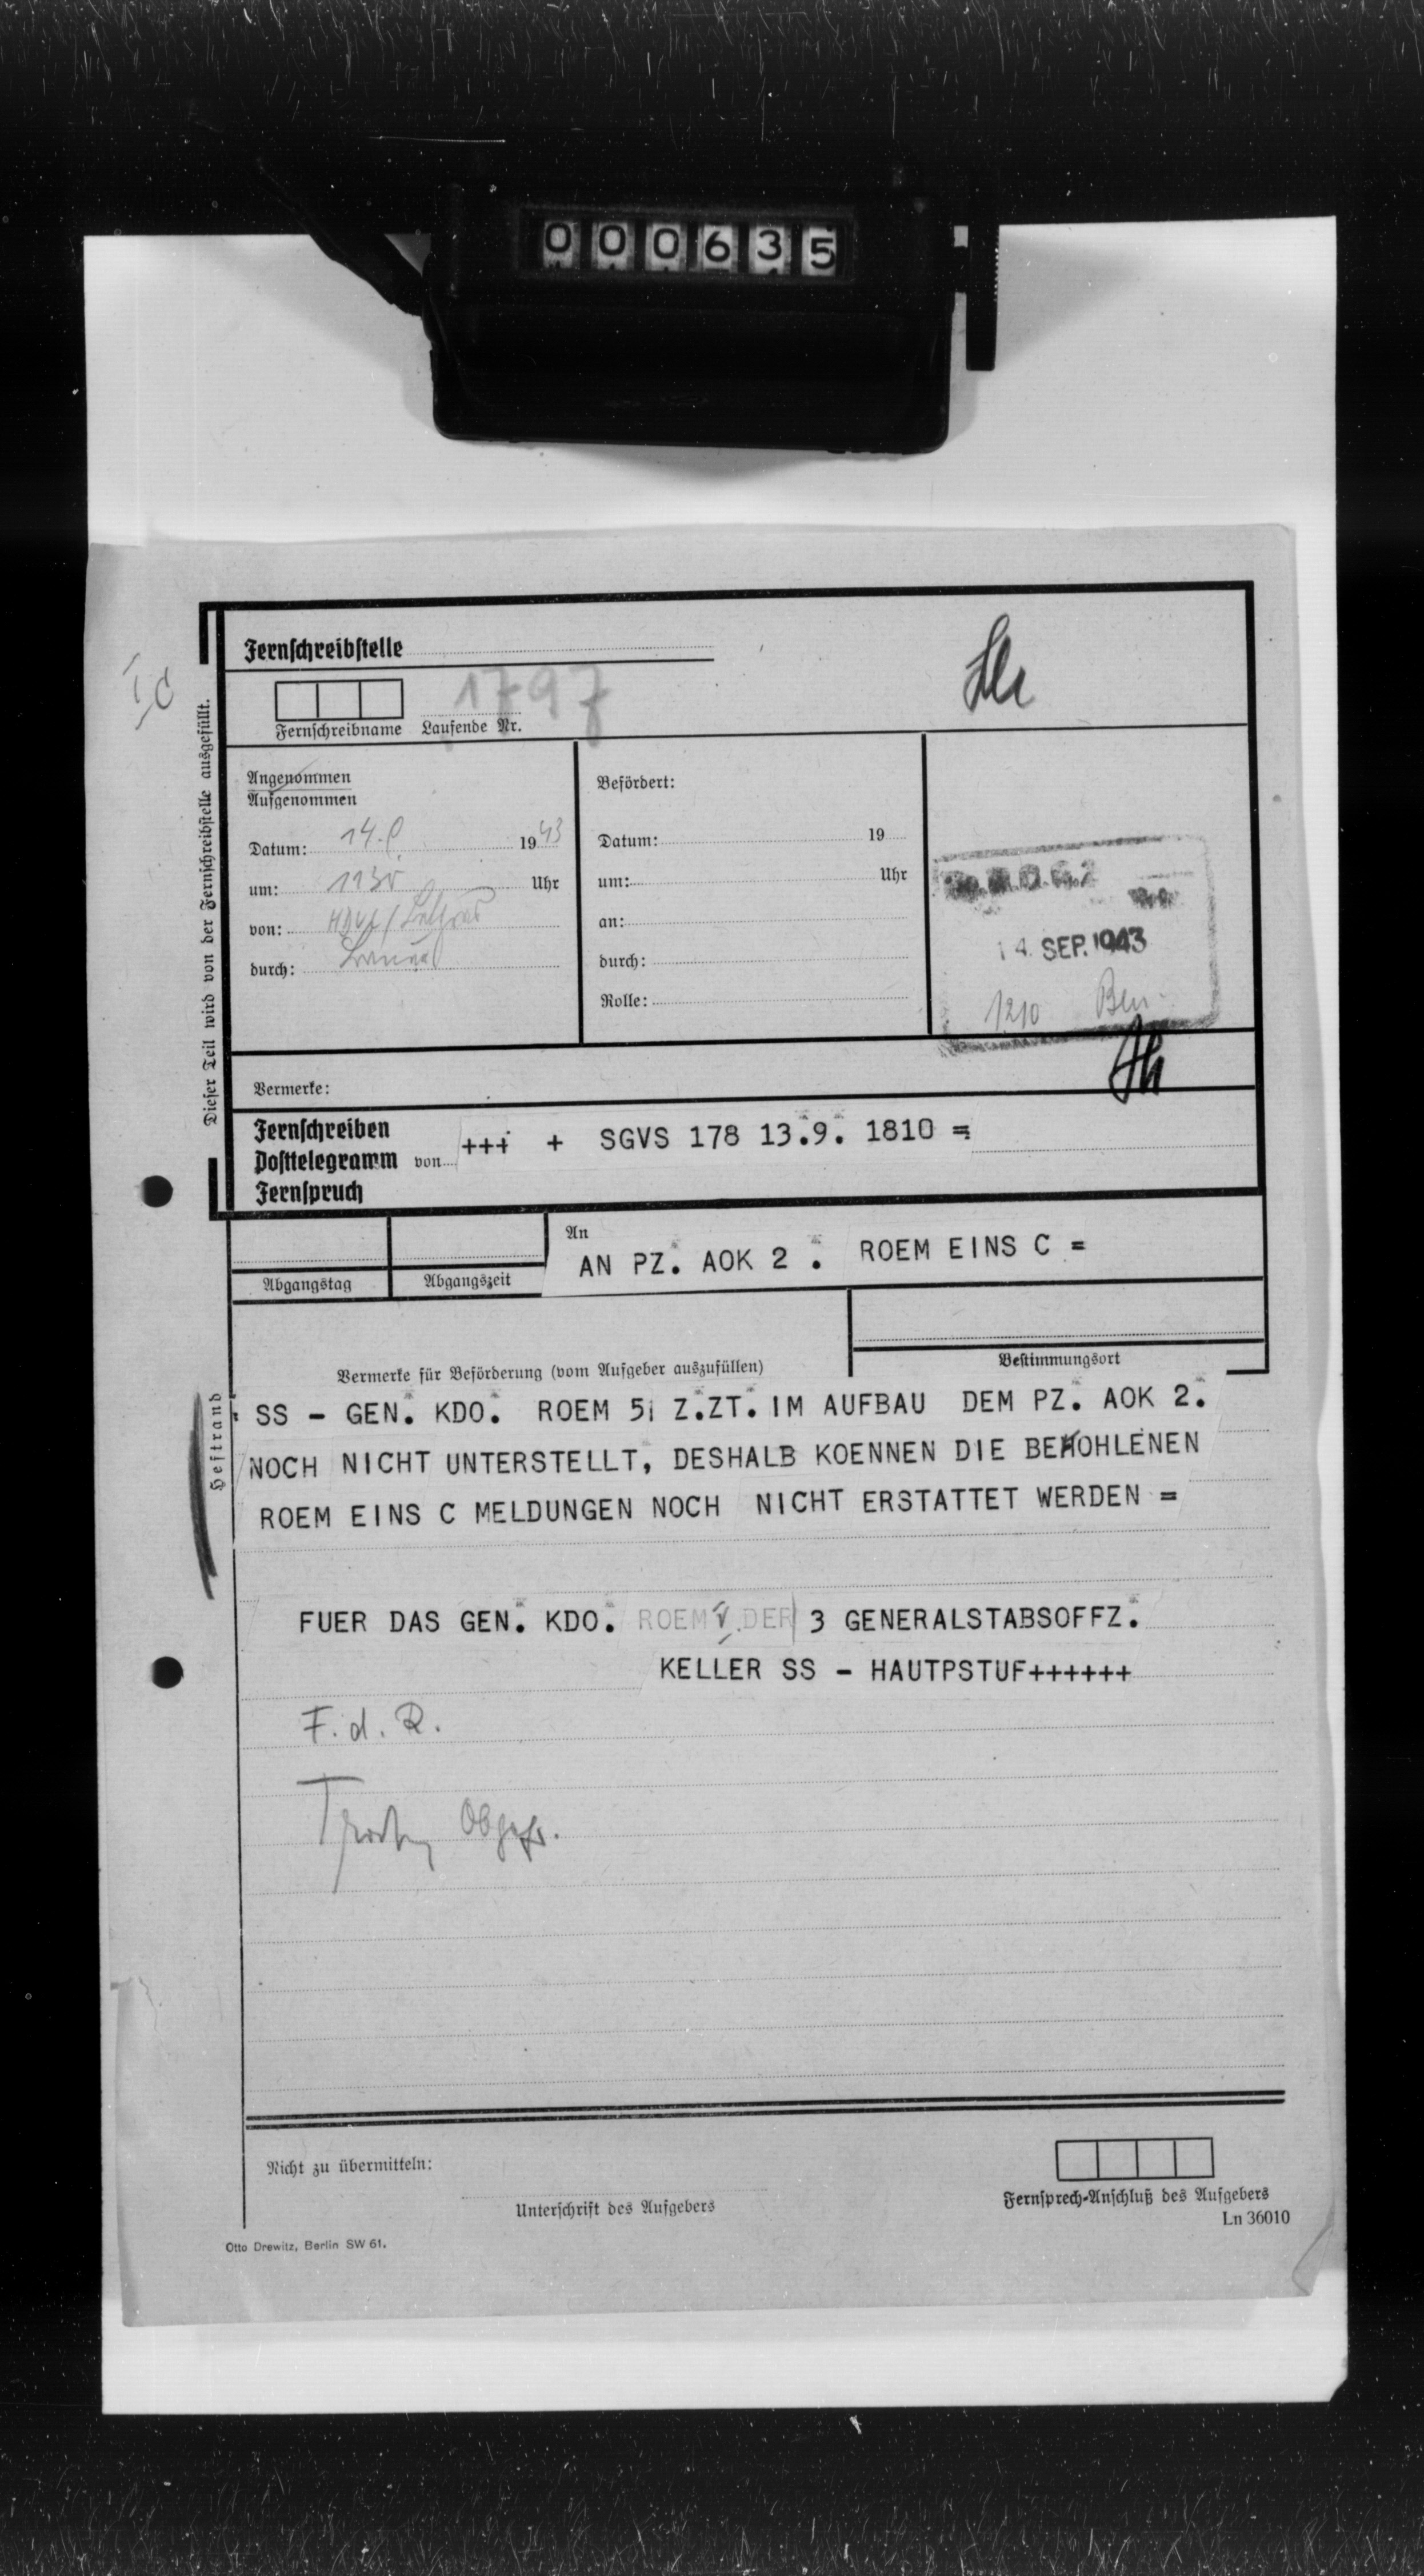 000635
Ic
Dieser Teil wird von der Fernschreibstelle ausgefüllt.
Fernschreibstelle
1797
Fernschreibname Laufende Nr.
Angenommen
Aufgenommen
Datum: 14.9. 1943
um: 1130 Uhr
von:
durch:
Befördert:
Datum: 19
um: Uhr
an:
durch:
Rolle:
14. SEP. 1943
1210
Vermerke:
Fernschreiben
Posttelegramm von +++ + SGVS 178 13.9. 1810 =
Fernspruch
Abgangstag
Abgangszeit
An
AN PZ. AOK 2 . ROEM EINS C =
Vermerke für Beförderung (vom Aufgeber auszufüllen)
Bestimmungsort
Heftrand
SS - GEN. KDO. ROEM 5, Z.ZT. IM AUFBAU DEM PZ. AOK 2.
NOCH NICHT UNTERSTELLT, DESHALB KOENNEN DIE BEFOHLENEN
ROEM EINS C MELDUNGEN NOCH NICHT ERSTATTET WERDEN =
FUER DAS GEN. KDO. ROEM V. DER 3 GENERALSTABSOFFZ.
KELLER SS - HAUTPSTUF++++++
F. d. R.
Obgefr.
Nicht zu übermitteln:
Unterschrift des Aufgebers
Fernsprech-Anschluß des Aufgebers
Ln 36010
Otto Drewitz, Berlin SW 61.